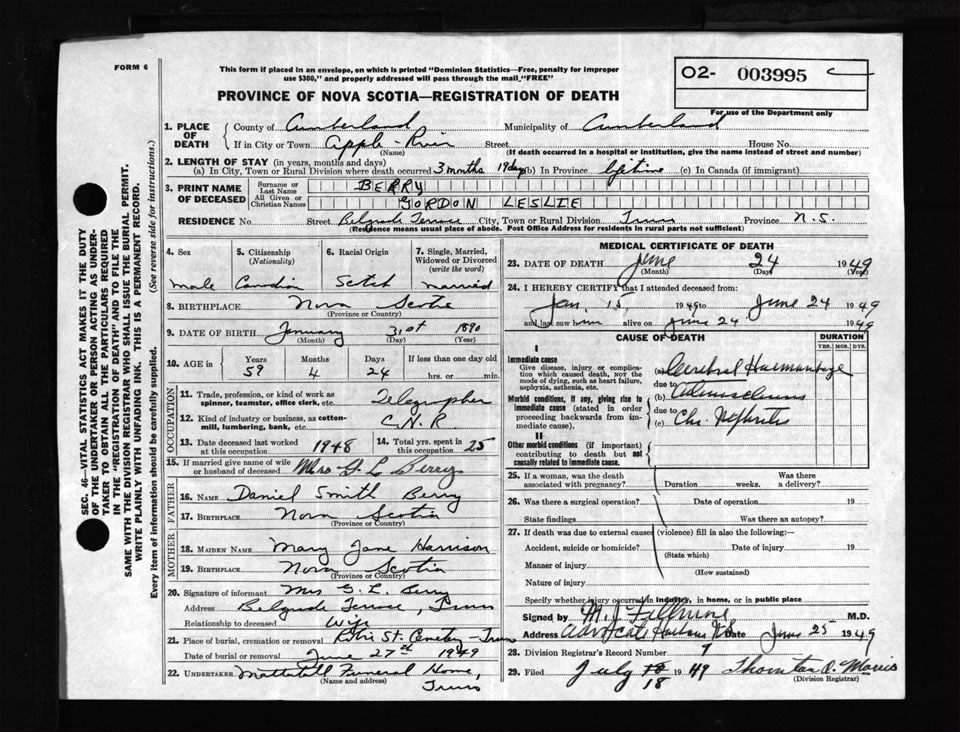 FORM 6
This form if placed in an envelope, on which is printed "Dominion Statistics—Free, penalty for improper
use $300," and properly addressed will pass through the mail "FREE"
O2- 003995
PROVINCE OF NOVA SCOTIA—REGISTRATION OF DEATH
For use of the Department only
SEC. 46—VITAL STATISTICS ACT MAKES IT THE DUTY
OF THE UNDERTAKER OR PERSON ACTING AS UNDER-
TAKER TO OBTAIN ALL THE PARTICULARS REQUIRED
IN THE "REGISTRATION OF DEATH" AND TO FILE THE
SAME WITH THE DIVISION REGISTRAR WHO SHALL ISSUE THE BURIAL PERMIT.
WRITE PLAINLY WITH UNFADING INK. THIS IS A PERMANENT RECORD.
Every item of information should be carefully supplied. (See reverse side for instructions.)
1. PLACE OF DEATH County of Cumberland Municipality of Cumberland
If in City or Town Apple-River Street House No.
(Name) (If death occurred in a hospital or institution, give the name instead of street and number)
2. LENGTH OF STAY (in years, months and days)
(a) In City, Town or Rural Division where death occurred 3 months 19 days (b) In Province lifetime (c) In Canada (if immigrant)
3. PRINT NAME OF DECEASED Surname or Last Name BERRY
All Given or Christian Names GORDON LESLIE
RESIDENCE No. Street Belgrade Terrace City, Town or Rural Division Truro Province N.S.
(Residence means usual place of abode. Post Office Address for residents in rural parts not sufficient)
4. Sex male
5. Citizenship (Nationality) Canadian
6. Racial Origin Scotch
7. Single, Married, Widowed or Divorced (write the word) married
8. BIRTHPLACE Nova Scotia
(Province or Country)
9. DATE OF BIRTH January 31st 1890
(Month) (Day) (Year)
10. AGE in Years 59 Months 4 Days 24 If less than one day old hrs. or min.
OCCUPATION
11. Trade, profession, or kind of work as spinner, teamster, office clerk, etc. Telegrapher
12. Kind of industry or business, as cotton-mill, lumbering, bank, etc. C.N.R
13. Date deceased last worked at this occupation 1948
14. Total yrs. spent in this occupation 25
15. If married give name of wife or husband of deceased Mrs G L Berry
FATHER
16. NAME Daniel Smith Berry
17. BIRTHPLACE Nova Scotia
(Province or Country)
MOTHER
18. MAIDEN NAME Mary Jane Harrison
19. BIRTHPLACE Nova Scotia
(Province or Country)
20. Signature of informant Mrs G. L. Berry
Address Belgrade Terrace, Truro
Relationship to deceased Wife
21. Place of burial, cremation or removal St. Cemetery - Truro
Date of burial or removal June 27th 1949
22. UNDERTAKER Mattatall Funeral Home,
(Name and address) Truro
MEDICAL CERTIFICATE OF DEATH
23. DATE OF DEATH June 24 1949
(Month) (Day) (Year)
24. I HEREBY CERTIFY that I attended deceased from:
Jan 15 1949 to June 24 1949
and last saw him alive on June 24 1949
CAUSE OF DEATH DURATION
YRS. MOS. DYS.
I
Immediate cause
Give disease, injury or complication which caused death, not the mode of dying, such as heart failure, asphyxia, asthenia, etc.
(a) Cerebral Haemorrhage
due to
Morbid conditions, if any, giving rise to immediate cause (stated in order proceeding backwards from immediate cause).
(b)
due to
(c) Chr. Nephritis
II
Other morbid conditions (if important) contributing to death but not causally related to immediate cause.
25. If a woman, was the death associated with pregnancy? Duration weeks. Was there a delivery?
26. Was there a surgical operation? Date of operation 19
State findings Was there an autopsy?
27. If death was due to external cause (violence) fill in also the following:—
Accident, suicide or homicide? Date of injury 19
(State which)
Manner of injury
(How sustained)
Nature of injury
Specify whether injury occurred in industry, in home, or in public place
Signed by M. J. Fillmore M.D.
Address Advocate Harbour N.S. Date June 25 1949
28. Division Registrar's Record Number 7
29. Filed July 18 1949 Thornton O. Morris
(Division Registrar)